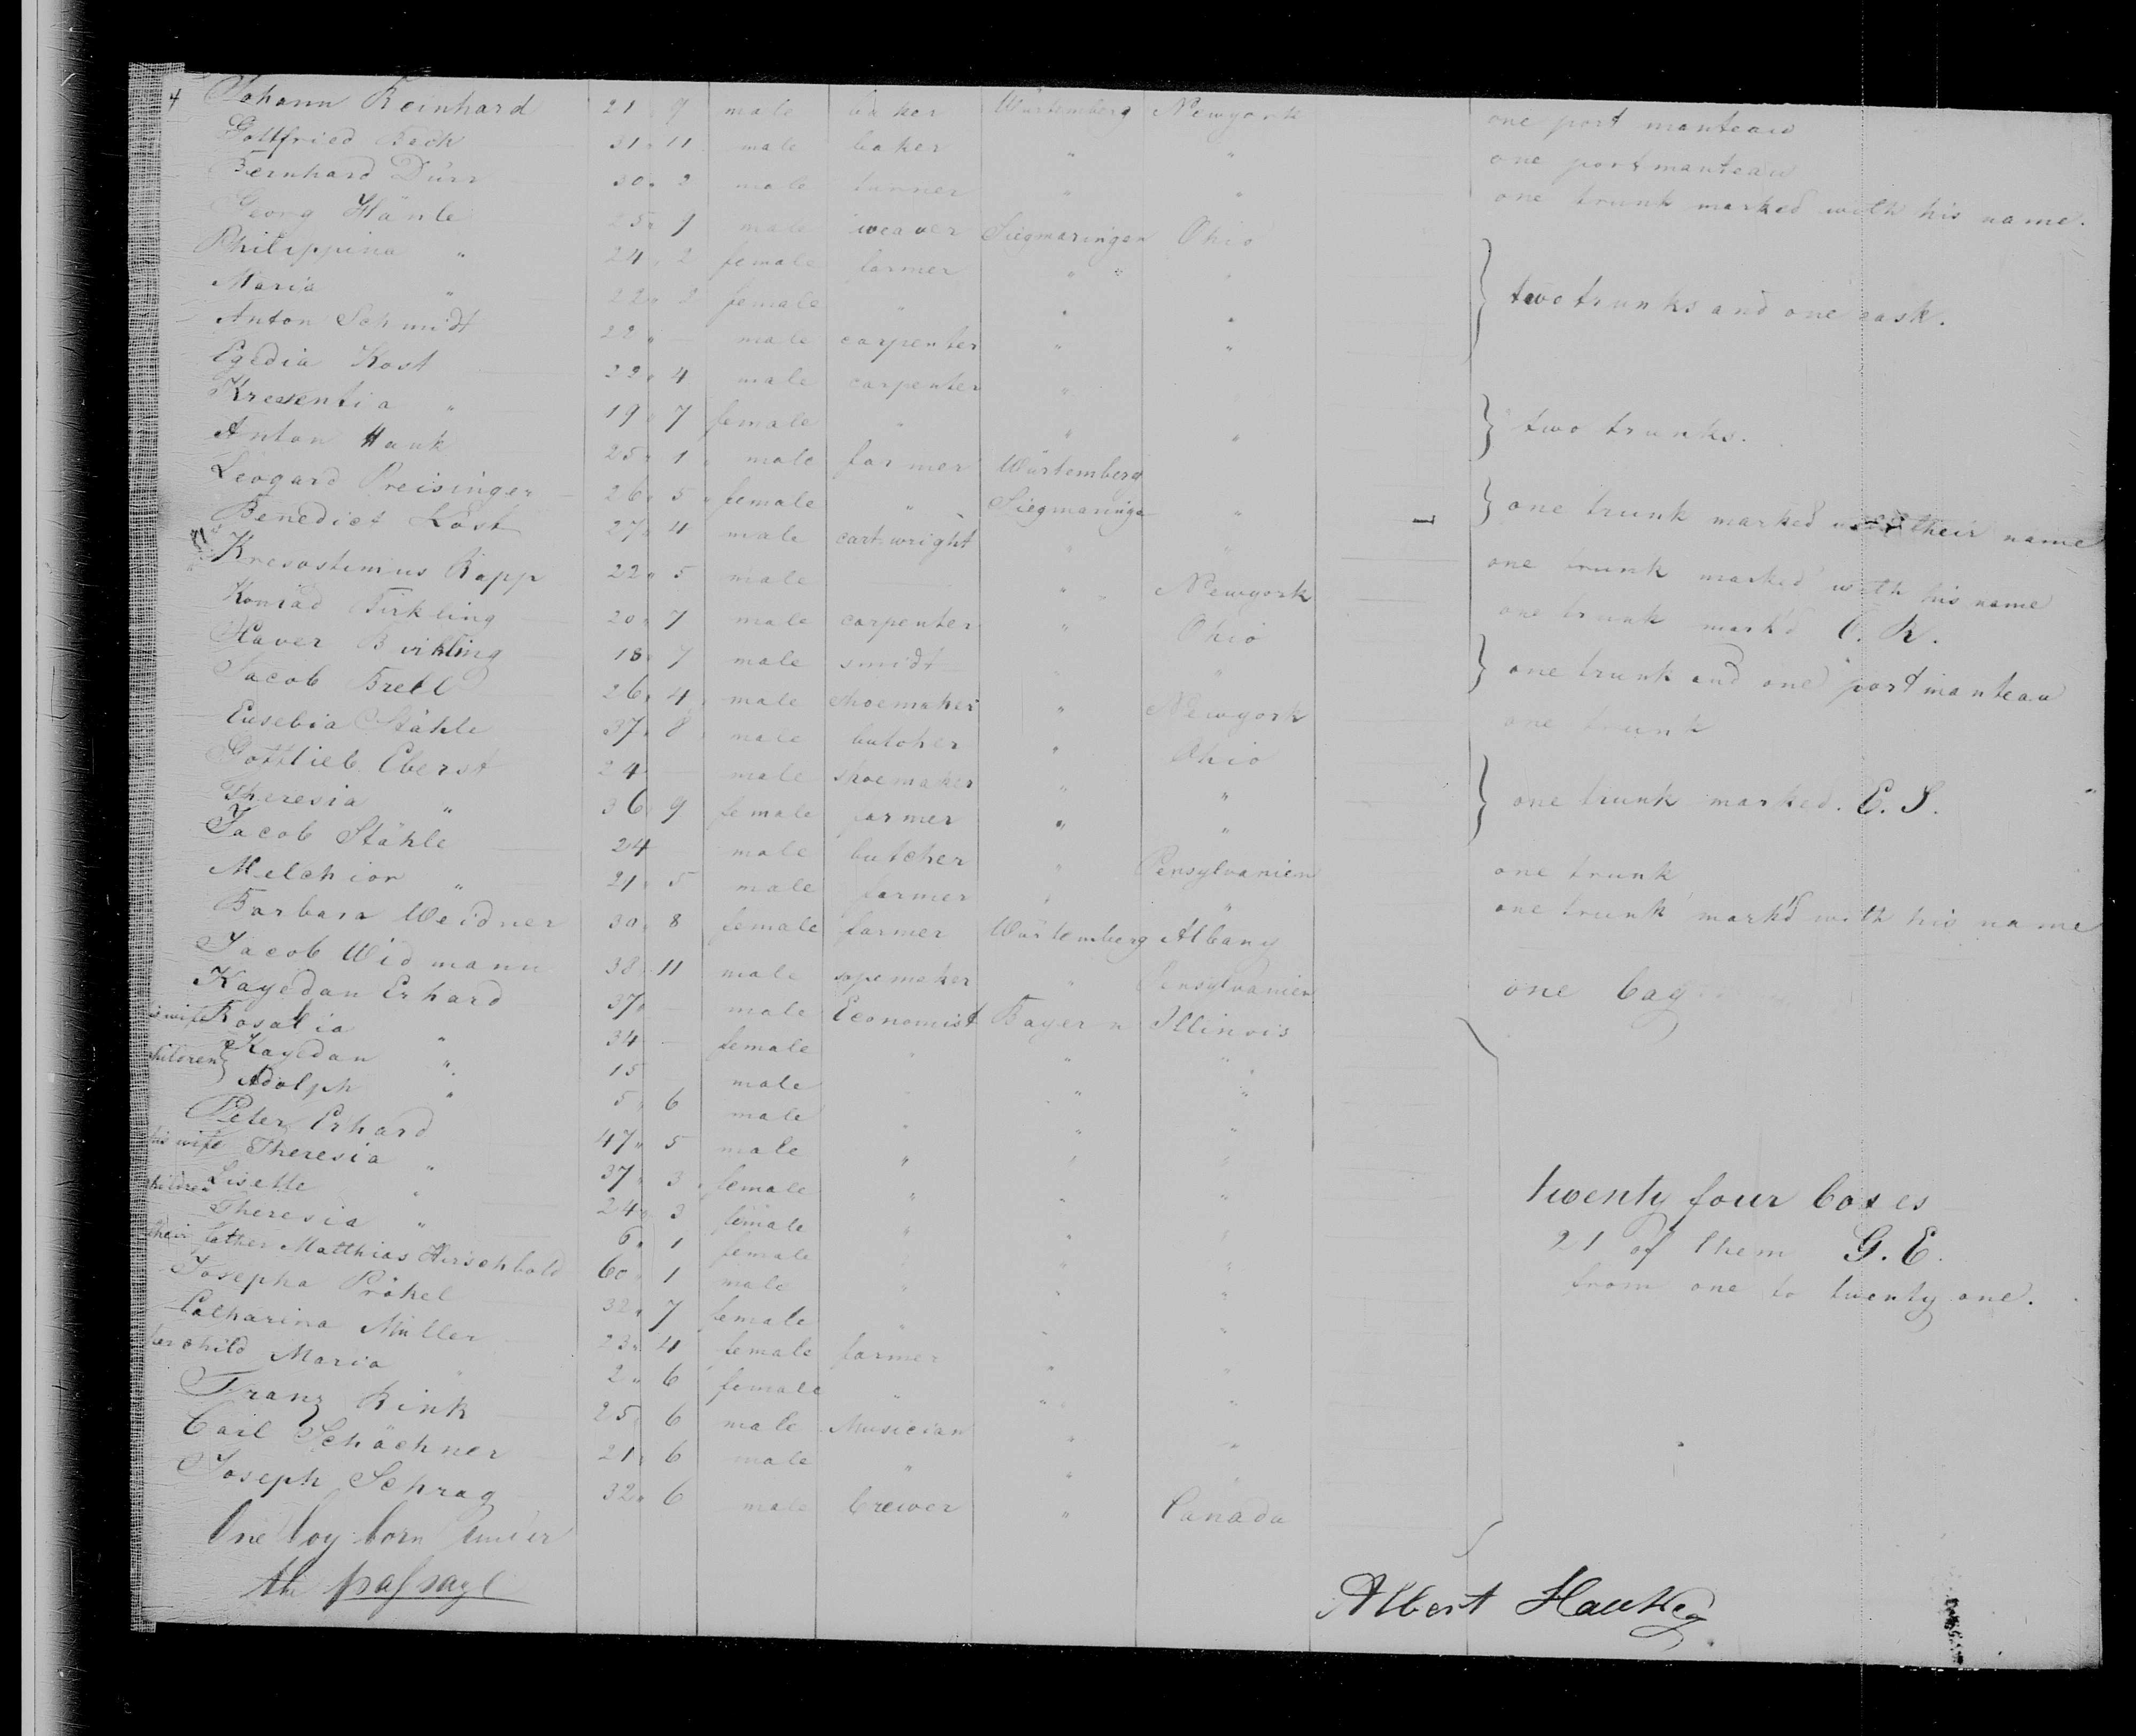 4 Johann Reinhard 21 " 9 male baker Würtemberg Newyork one port manteau
Gottfried Beck 31 " 11 male baker " " one portmanteau
Bernhard Dürr 30 " 2 male " " one trunk marked with his name.
Georg Hänle 25 " 1 male weaver Siegmaringen Ohio
Philippina " 24 " 2 female farmer " "
Maria " 22 " 2 female " " " two trunks and one cask.
Anton Schmidt 22 " male carpenter " "
Egedia Kost 22 " 4 male carpenter "
Kresentia " 19 " 7 female " " " two trunks.
Anton Hauk 25 " 1 male farmer Würtemberg
Leogard Preisinger 26 " 5 female " Siegmaringen " one trunk marked with their name
Benedict Kost 27 " 4 male cart wright " " one trunk marked with his name
Kresostimus Rapp 22 " 5 male " Newyork one trunk mark'd C. R.
Konrad Birkling 20 " 7 male carpenter " Ohio
Xaver Birkling 18 " 7 male smidt " " one trunk and one portmanteau
Jacob Brell 26 " 4 male shoemaker " Newyork one trunk
Eusebia Stähle 37 " 8 male butcher " Ohio
Gottlieb Eberst 24 male shoemaker " " one trunk marked. E. S.
Theresia " 36 9 female farmer " "
Jacob Stähle 24 male butcher " Pensylvanien one trunk
Melchior " 21 " 5 male farmer " " one trunk mark'd with his name
Barbara Weidner 30 " 8 female farmer Würtemberg Albany
Jacob Widmann 38 11 male " Pensylvanien one bag
Kayedan Erhard 37 " male Economist Bayern Illinois
his wife Rosalia " 34 female " " "
children Kayedan " 15 male " "
Adolph " 5 " 6 male " " "
Peter Erhard 47 " 5 male " " "
his wife Theresia " 37 " 3 female " " "
children Lisette " 24 " 3 female " " " twenty four boxes
Theresia " 6 " 1 female " " " 21 of them G. E.
their father Matthias Hirschbold 60 " 1 male " " " from one to twenty one.
Josepha Prökel 32 " 7 female " " "
Catharina Müller 23 " 4 female farmer " "
her child Maria " 2 " 6 female " " "
Franz Rink 25 6 male Musician " "
Carl Schächner 21 " 6 male " " "
Joseph Schrag 32 " 6 male brewer " Canada
One boy born under
the passage
Albert